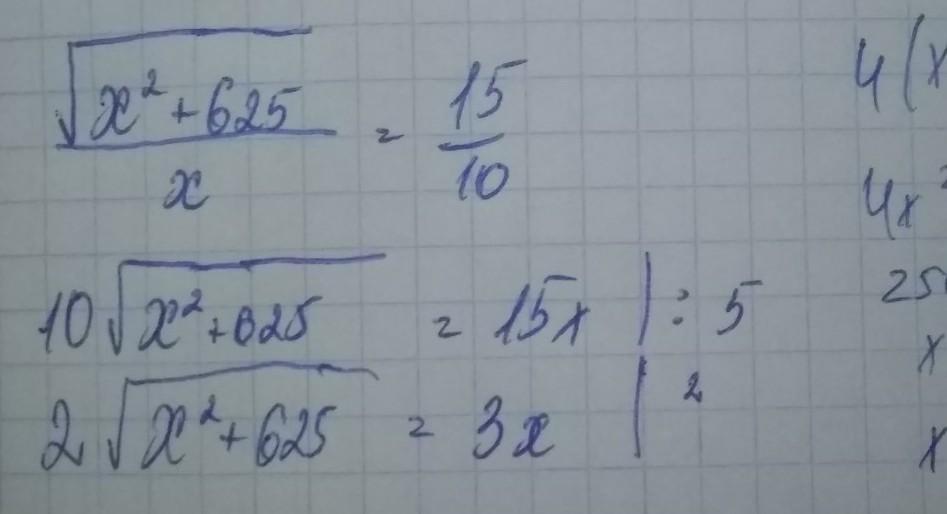 √(x²+625) / x = 15/10
10√(x²+625) = 15x |: 5
2√(x²+625) = 3x |²
4(x
4x²
25
x
x